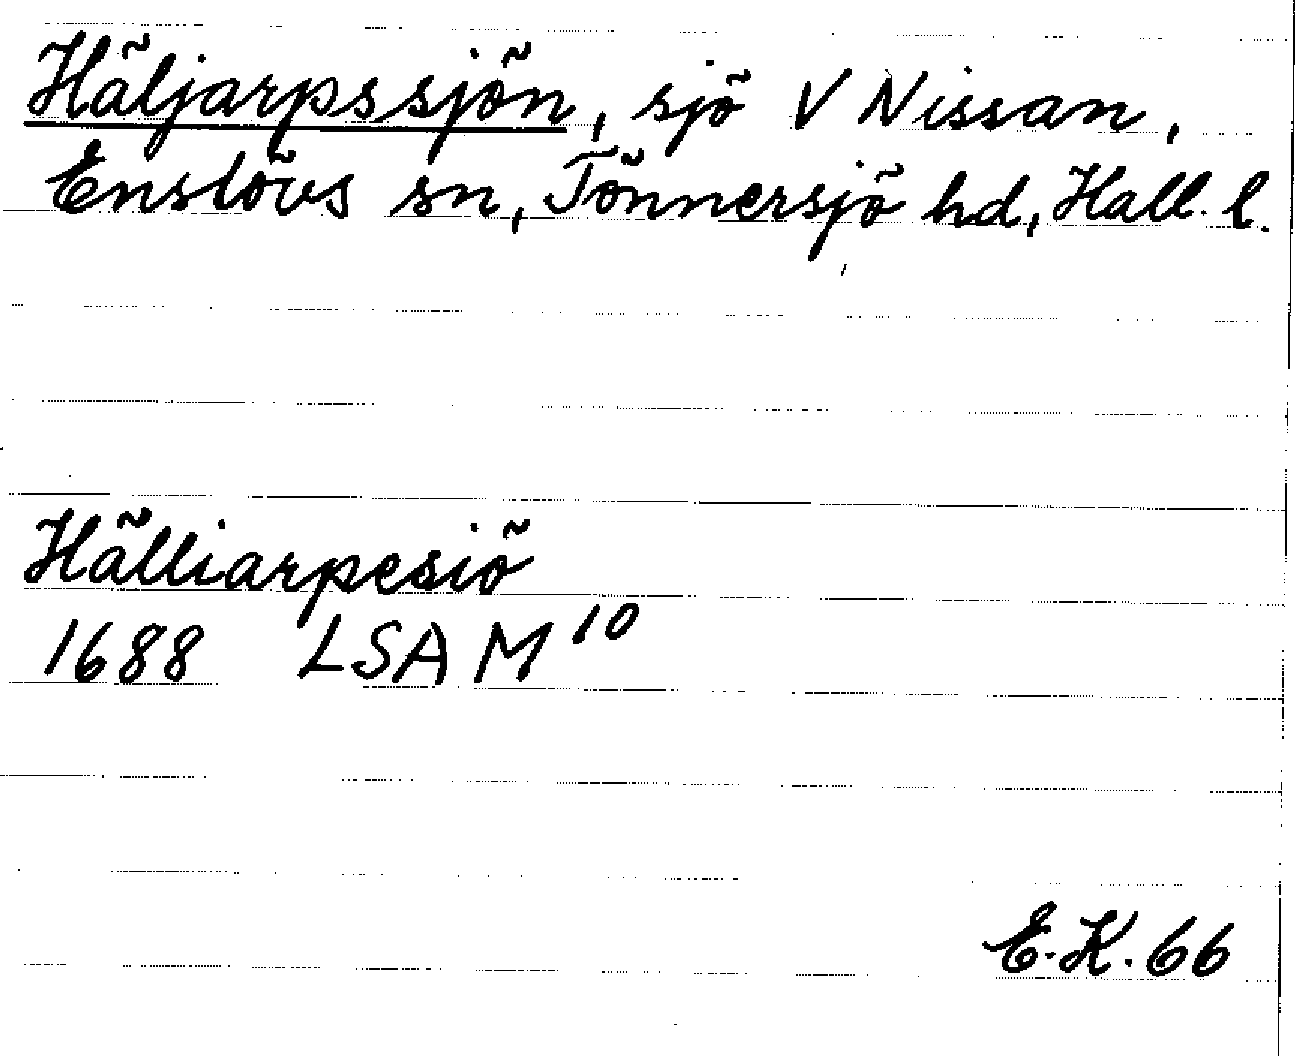 Häljarpssjön, sjö V Nissan,
Enslövs sn, Tönnersjö hd, Hall. l.
Hälliarpesiö
1688 LSA M¹⁰
E.K. 66